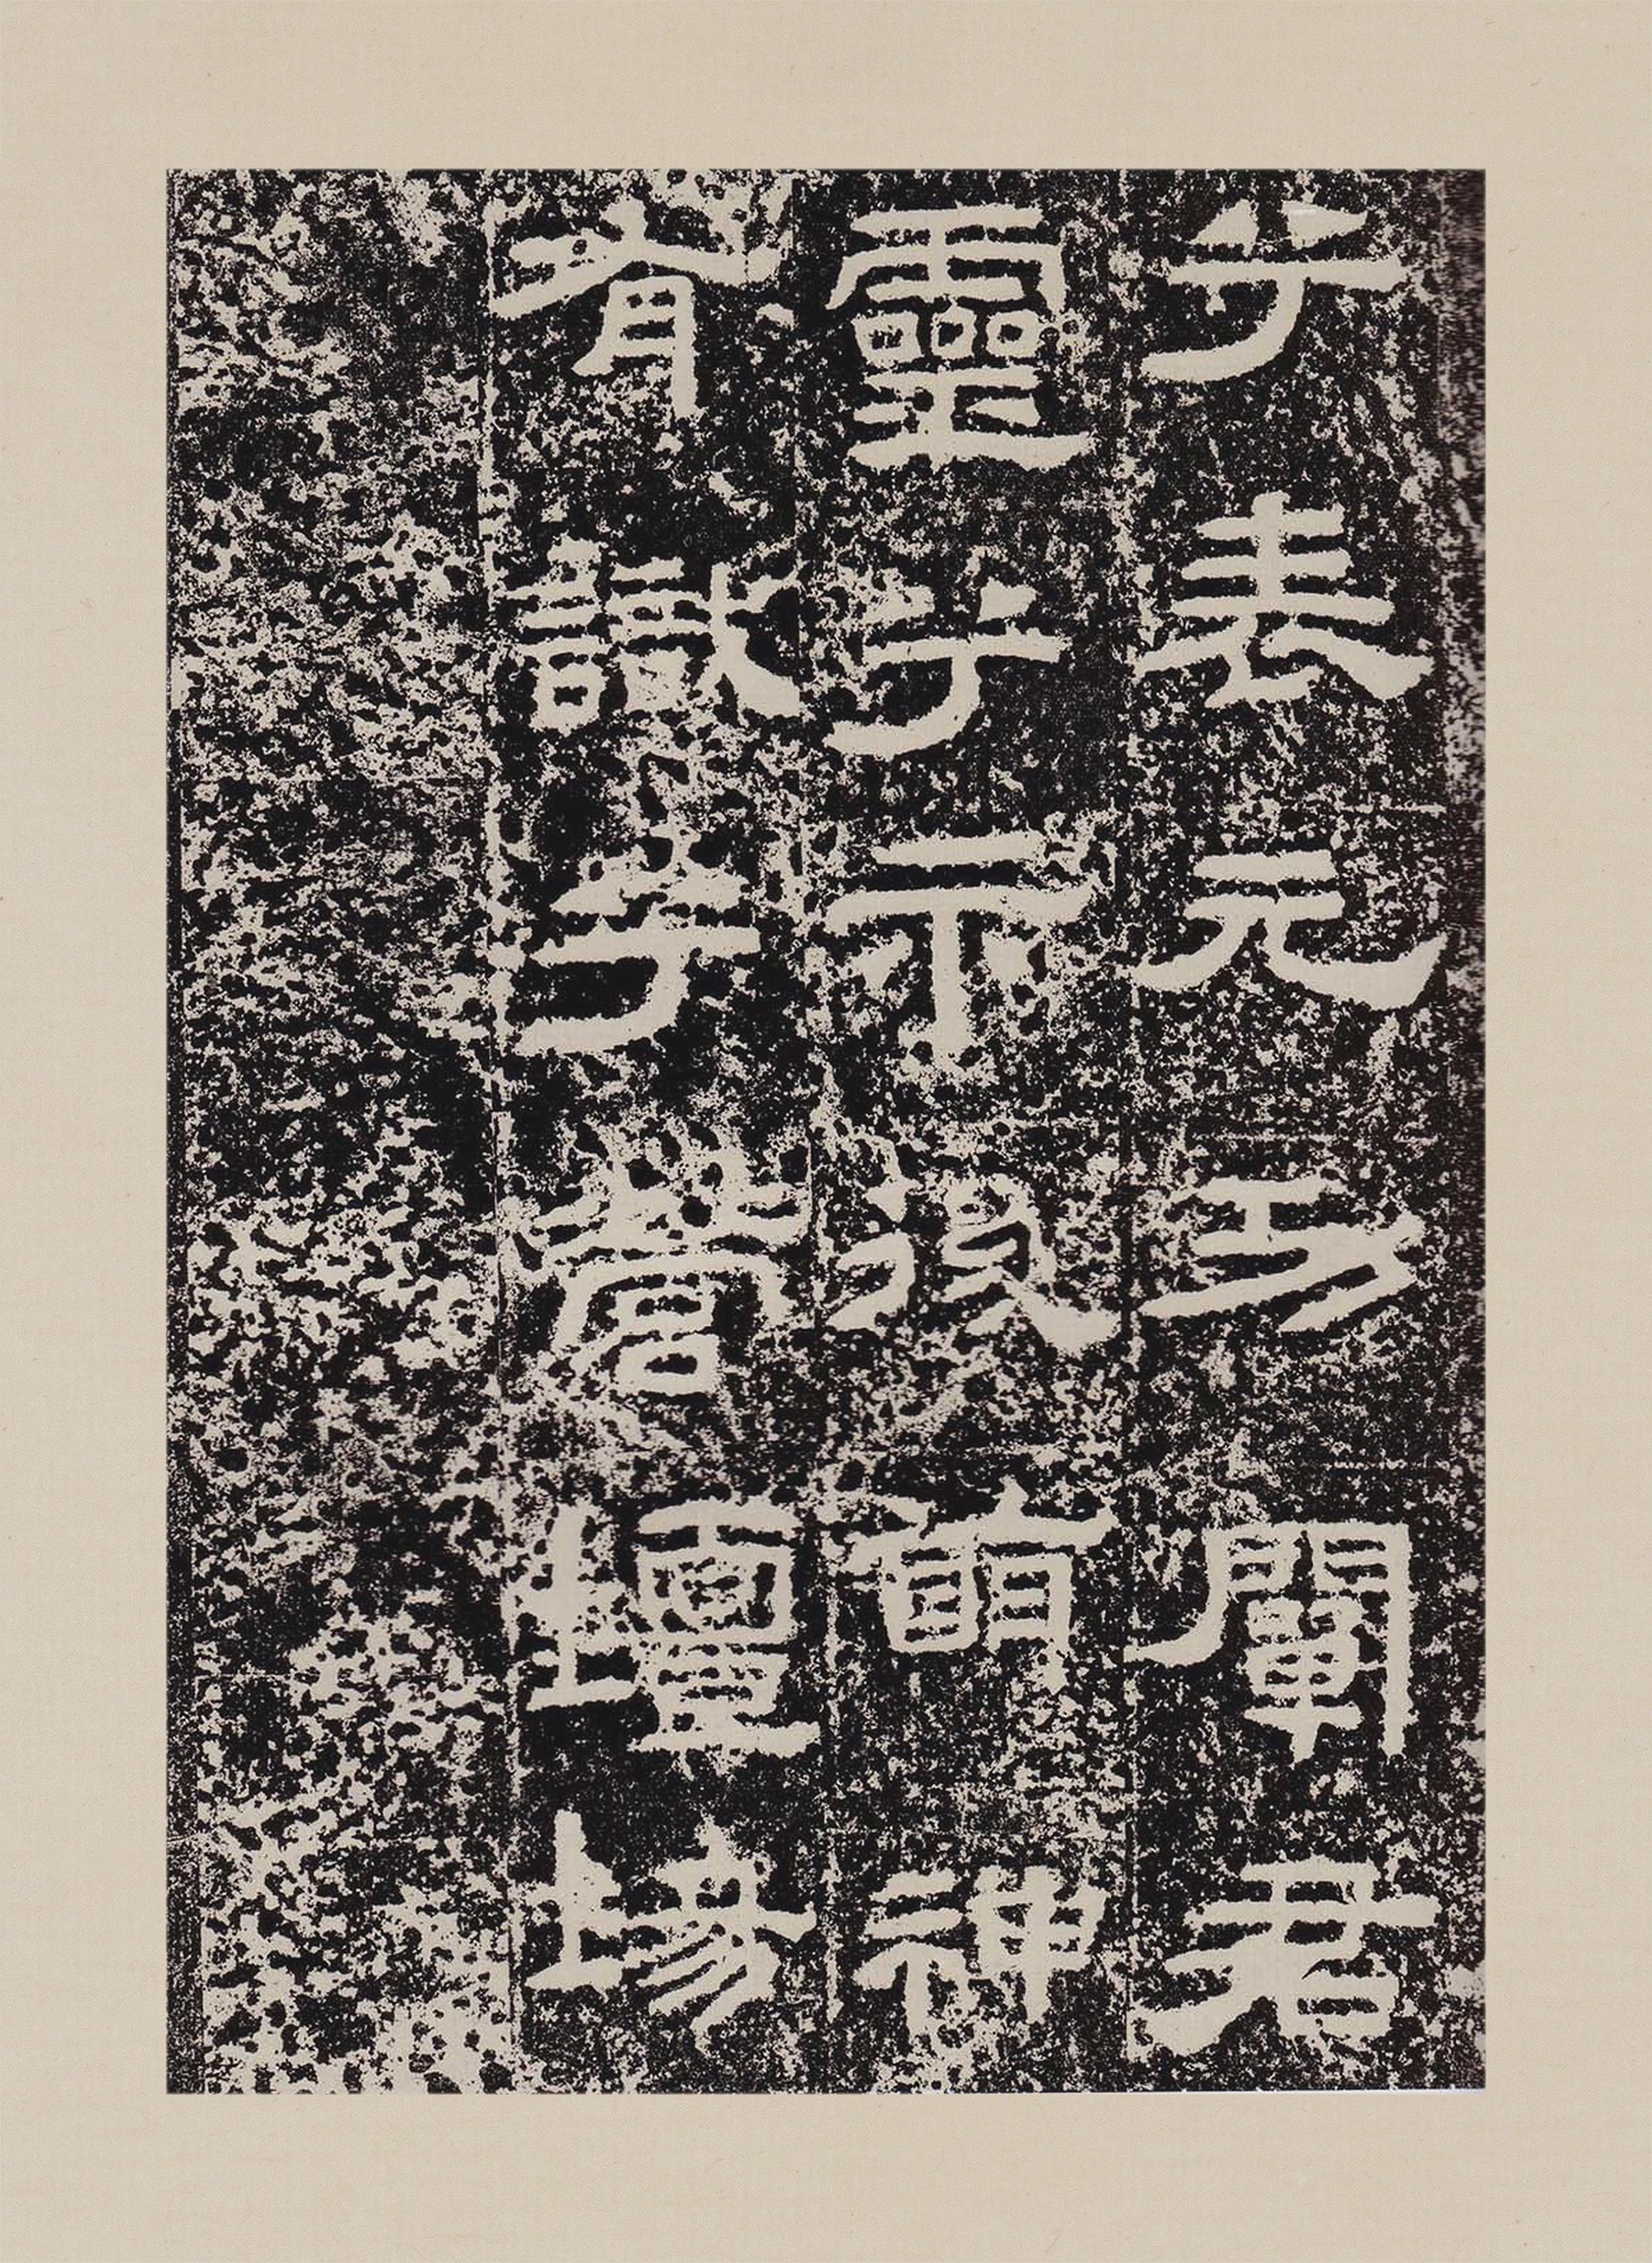 兮表元功闡君
靈兮示後萌神
有識兮營壇場